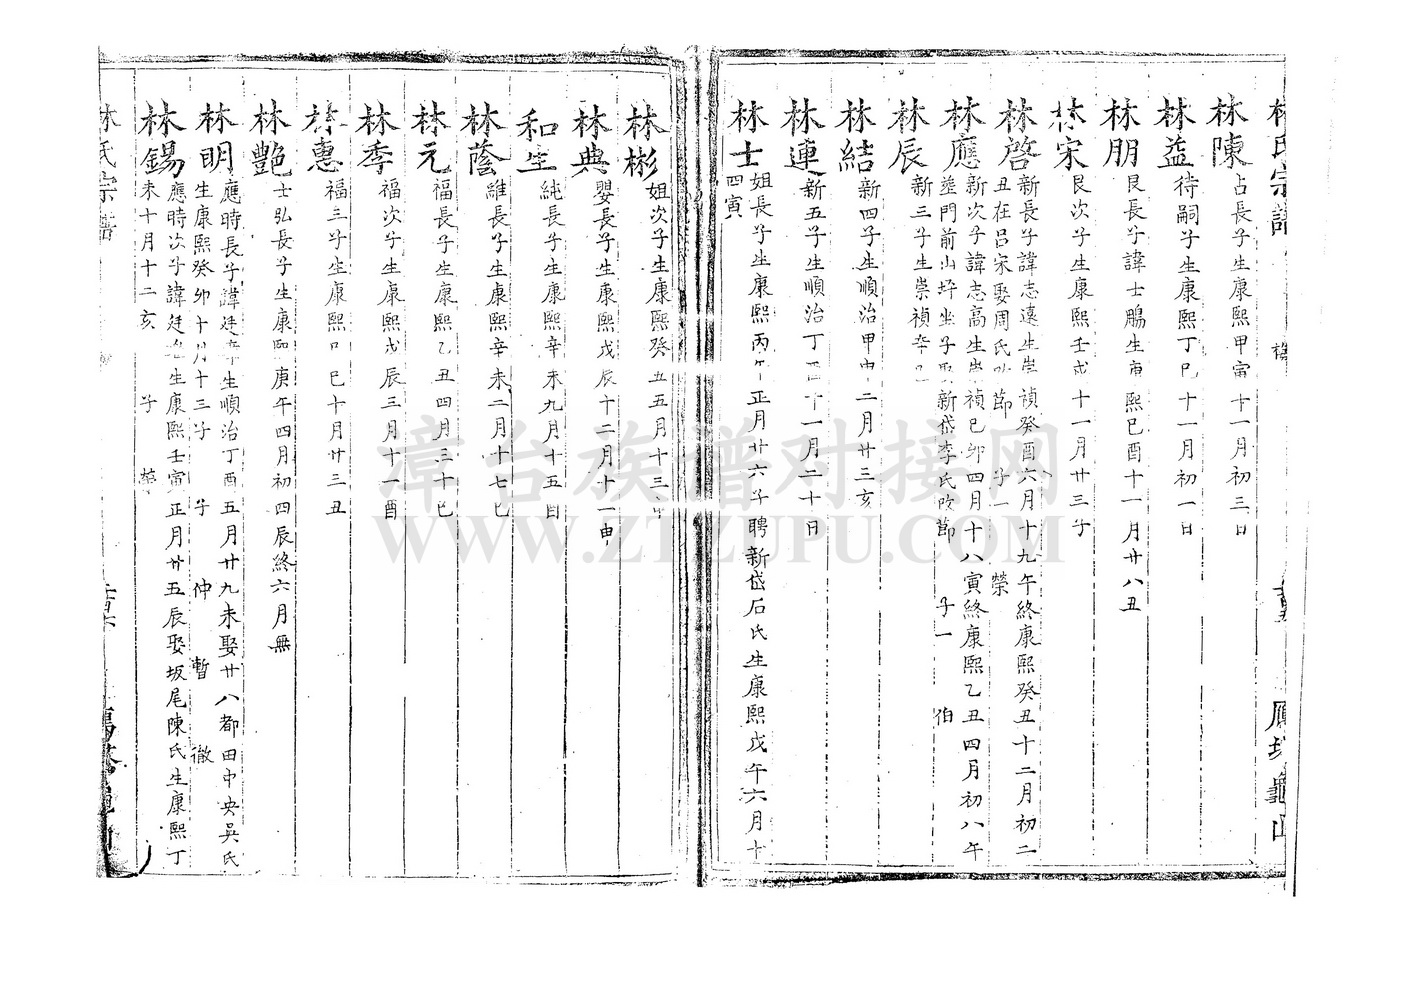 林氏宗譜
鳳塔龜山
林陳 占長子生康熙甲寅十一月初三日
林益 待嗣子生康熙丁巳十一月初一日
林朋 艮長子諱士鵬生康熙己酉十一月廿八丑
林宋 艮次子生康熙壬戌十一月廿三子
林啓 新長子諱志遠生崇禎癸酉六月十九午終康熙癸丑十二月初二
丑在呂宋娶周氏改節 子一 榮
林應 新次子諱志高生崇禎己卯四月十八寅終康熙乙丑四月初八午
塟門前山坪坐子娶新岱李氏改節 子一 伯
林辰 新三子生崇禎辛
林結 新四子生順治甲申二月廿三亥
林連 新五子生順治丁酉十一月二十日
林士 姐長子生康熙丙午正月廿六子聘新岱石氏生康熙戊午六月十
四寅
林彬 姐次子生康熙癸丑五月十三
林典 嬰長子生康熙戊辰十二月十一申
和生 純長子生康熙辛未九月十五日
林蔭 雖長子生康熙辛未二月十七巳
林元 福長子生康熙乙丑四月三十巳
林季 福次子生康熙戊辰三月十一酉
林惠 福三子生康熙己巳十月廿三丑
林艷 士弘長子生康熙庚午四月初四辰終六月無
林明 應時長子諱廷辛生順治丁酉五月廿九未娶廿八都田中央吳氏
生康熙癸卯十月十三子 子 仲 暫 徹
林錫 應時次子諱廷 生康熙壬寅正月廿五辰娶坂尾陳氏生康熙丁
未十月十二亥 子 榮
林氏宗譜
漳台族谱对接网
WWW.ZTZUPU.COM